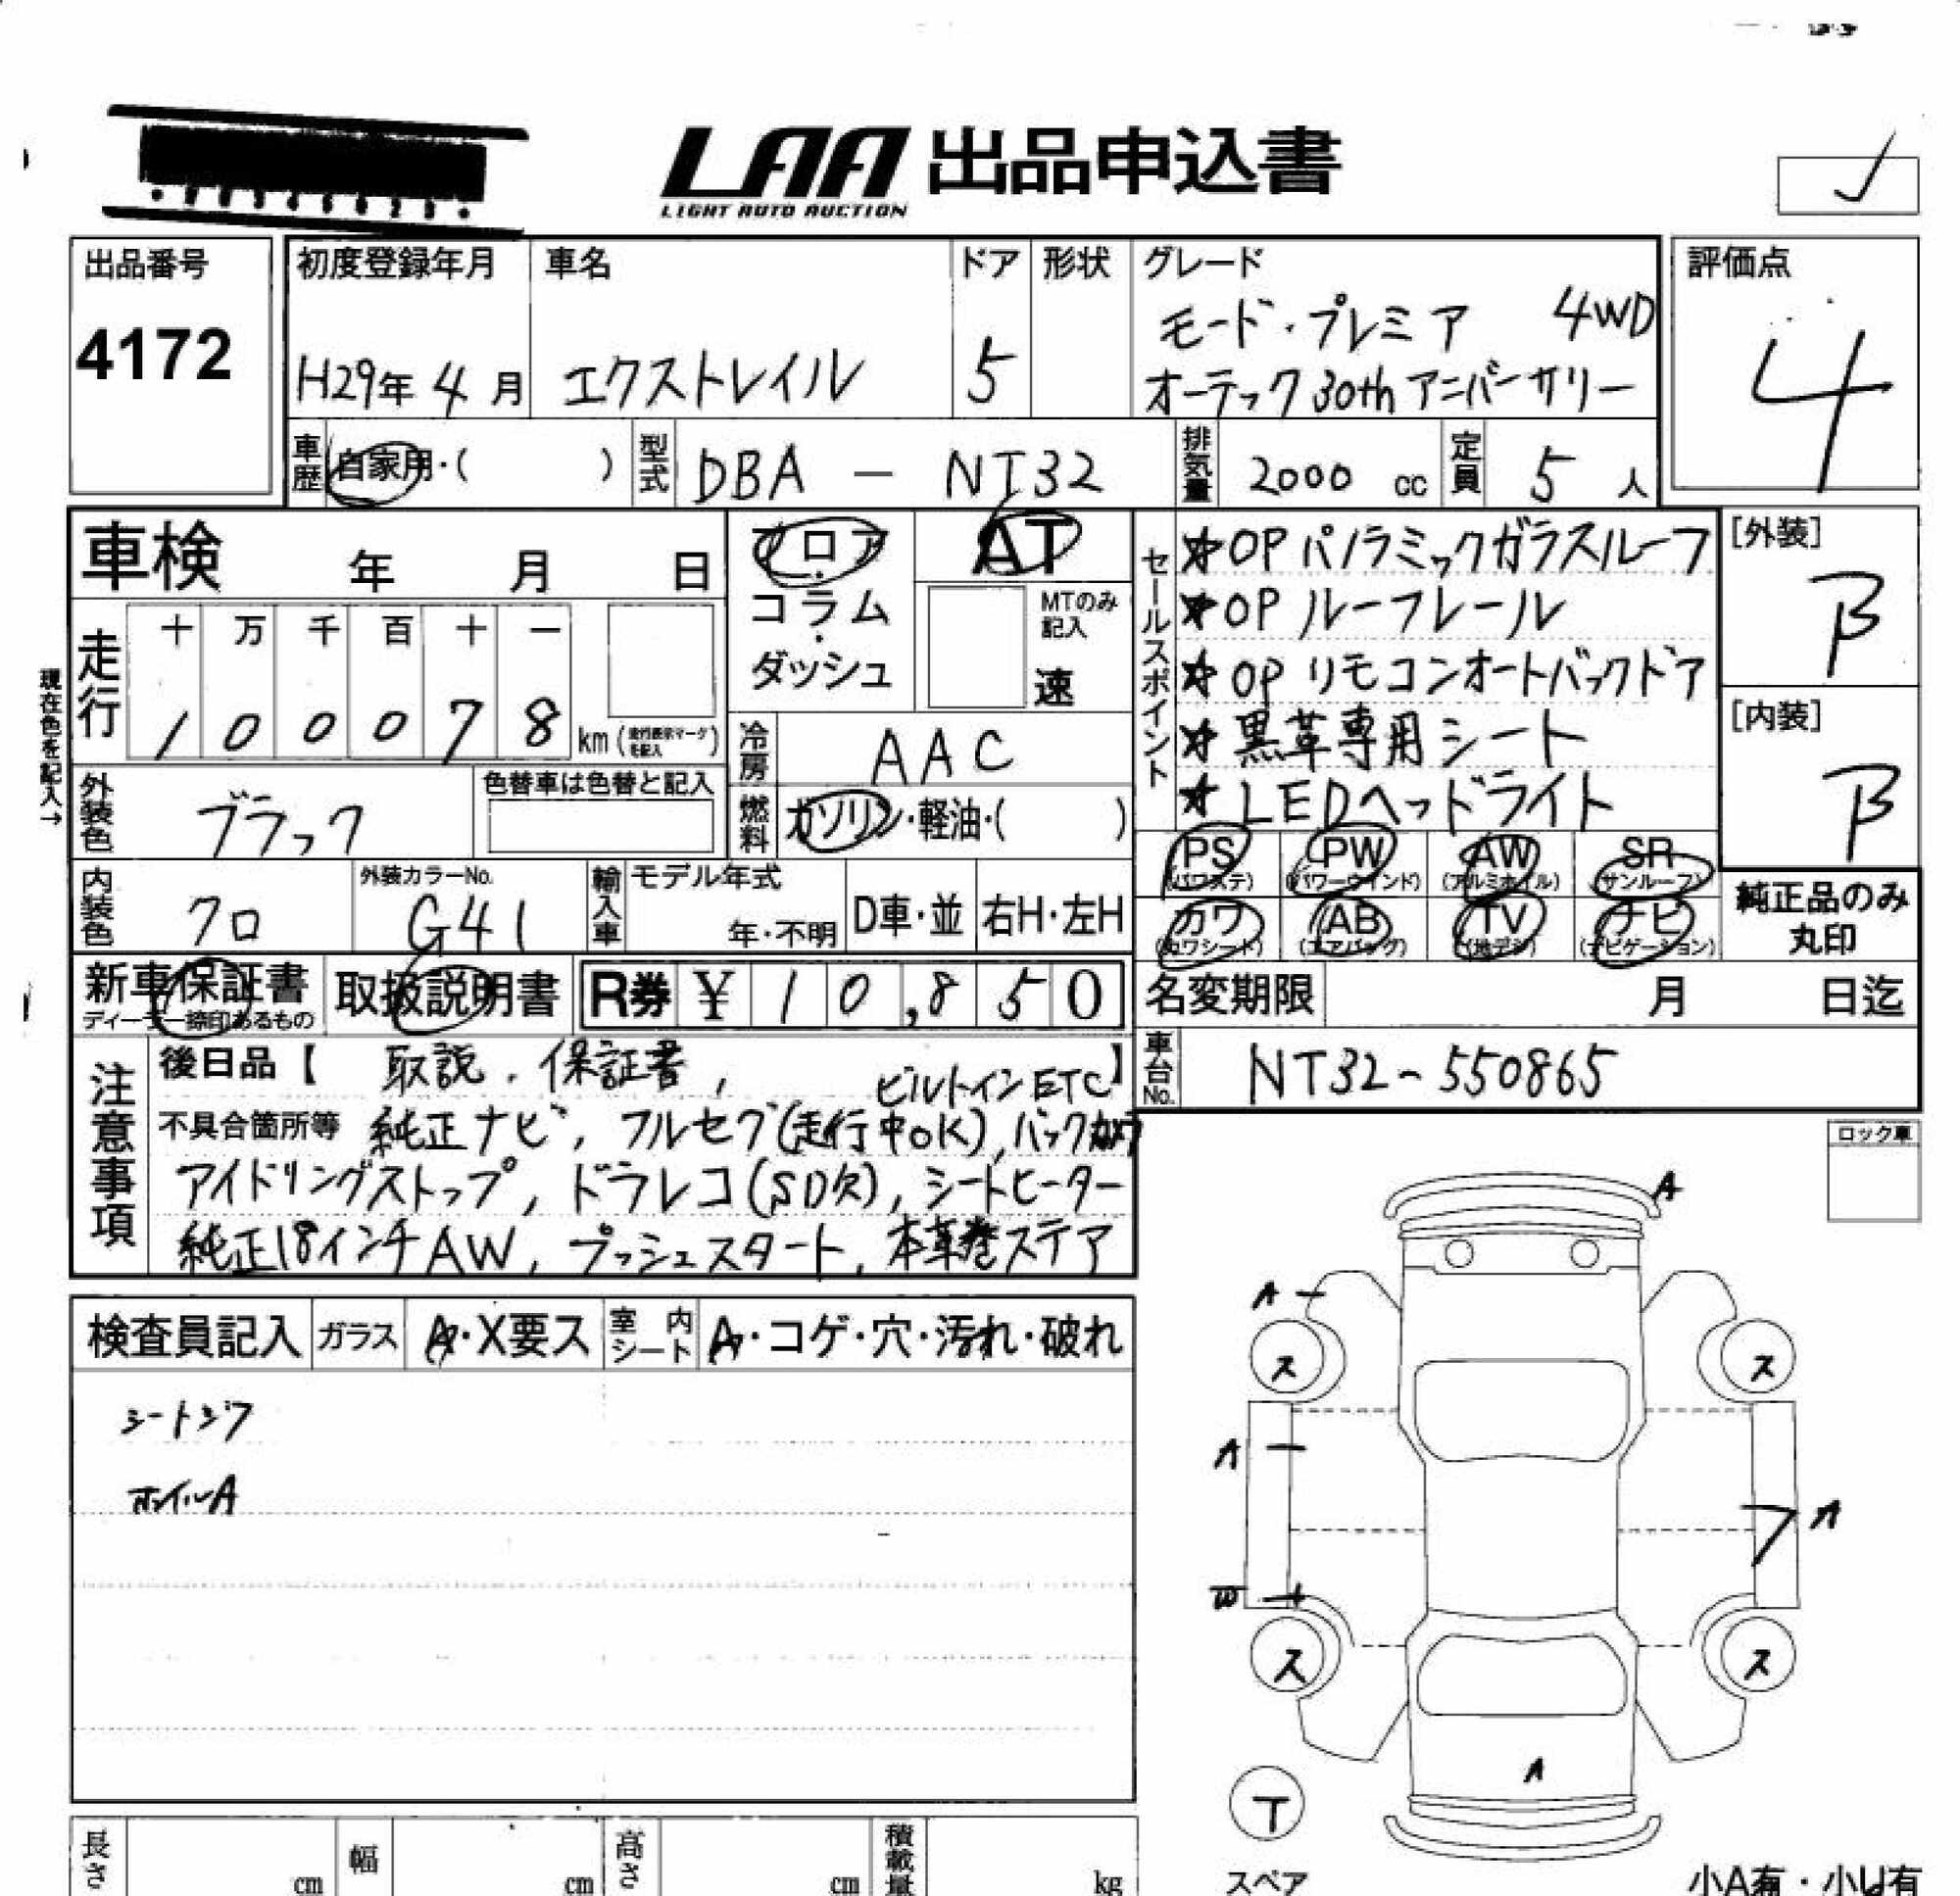 LAA 出品申込書
LIGHT AUTO AUCTION
出品番号
4172
初度登録年月
H29年 4月
車名
エクストレイル
ドア
5
形状
グレード
モード・プレミア 4WD
オーテック 30th アニバーサリー
評価点
4
車歴 自家用・( )
型式 DBA - NT32
排気量 2000 cc
定員 5 人
車検 年 月 日
フロア
コラム
ダッシュ
AT
MTのみ記入
速
セールスポイント
★OP パノラミックガラスルーフ
★OP ルーフレール
★OP リモコンオートバックドア
★黒革専用シート
★LEDヘッドライト
[外装]
B
[内装]
B
現在色を記入→
走行
十 万 千 百 十 一
1 0 0 0 7 8 km (走行表示マークを記入)
冷房 AAC
燃料 ガソリン・軽油・( )
外装色 ブラック
色替車は色替と記入
内装色 クロ
外装カラーNo.
G41
輸入車
モデル年式
年・不明
D車・並
右H・左H
PS (パワステ)
PW (パワーウインド)
AW (アルミホイル)
SR (サンルーフ)
カワ (カワシート)
AB (エアバッグ)
TV (地デジ)
ナビ (ナビゲーション)
純正品のみ
丸印
新車保証書
ディーラー捺印あるもの
取扱説明書
R券 ¥ 10,850
名変期限 月 日迄
車台No. NT32-550865
注意事項
後日品【 取説、保証書, 】
ビルトインETC
不具合箇所等 純正ナビ, フルセグ(走行中OK), バックカメラ
アイドリングストップ, ドラレコ(SD欠), シートヒーター
純正18インチAW, プッシュスタート, 本革巻ステア
ロック車
検査員記入
ガラス A・X要ス
室内シート A・コゲ・穴・汚れ・破れ
シートシワ
ホイルA
A
A
ス
ス
A
A
W
ス
ス
A
T
スペア
長さ cm
幅 cm
高さ cm
積載量 kg
小A有・小U有